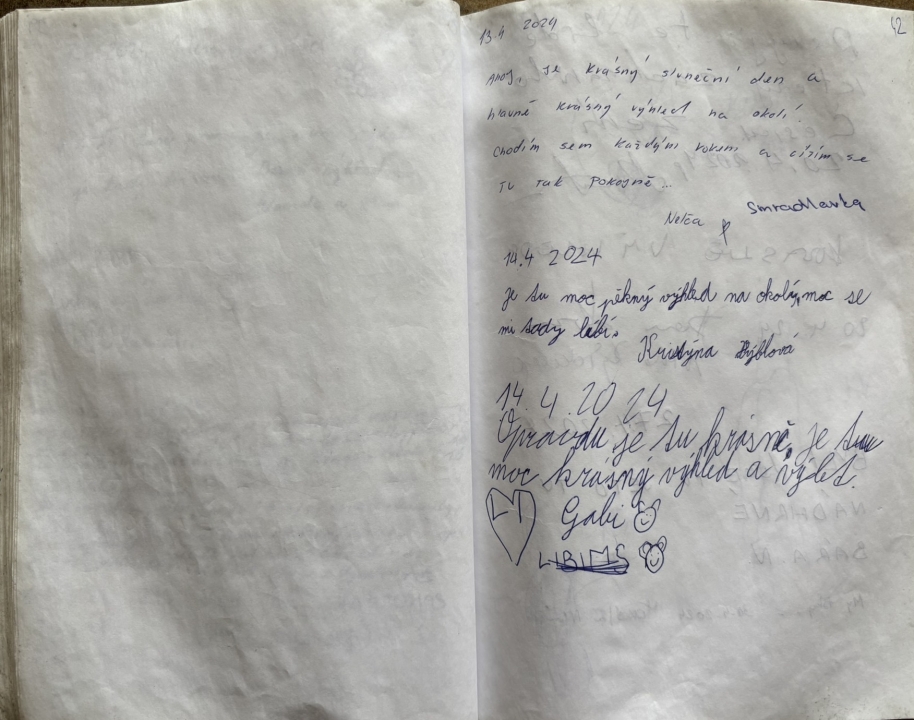 42
13.4 2024
Ahoj, je krásný sluneční den a
hlavně krásný výhled na okolí.
Chodím sem každým rokem a cítím se
tu tak pokojně...
Nelča Smradlavka
14.4 2024
je tu moc pěkný výhled na okolý, moc se
mi tady líbí.
Kristýna
14.4.2024
Opravdu je tu krásně, je tu
moc krásný výhled a výlet.
Gabi